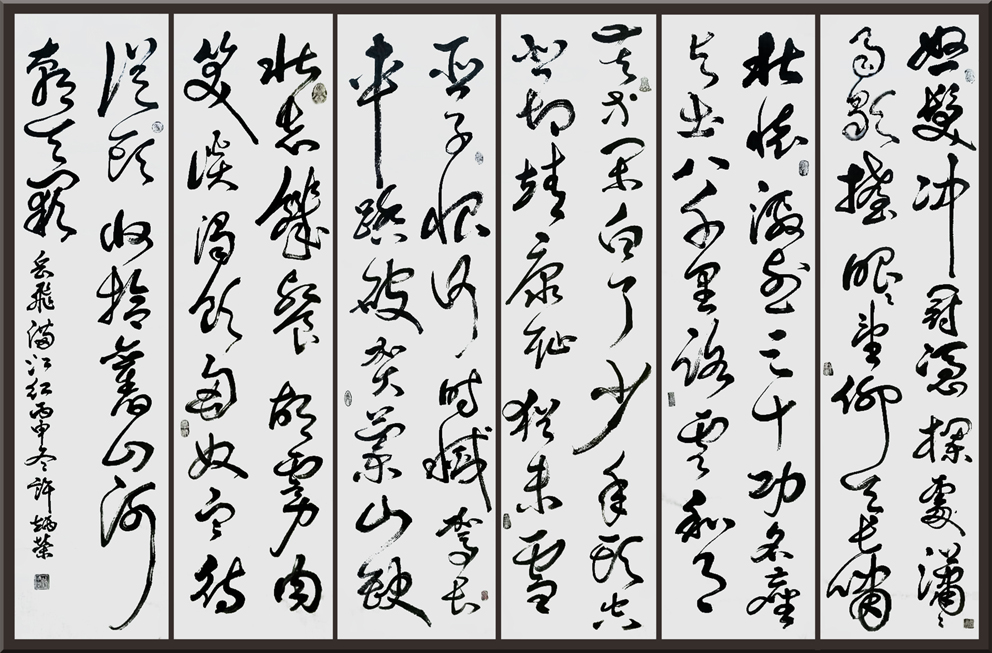 怒髮冲冠憑欄處瀟〻
雨歇擡眼望仰天長嘯
壯懷激烈三十功名塵
与土八千里路雲和月
莫等閑白了少年頭空
悲切靖康恥猶未雪
臣子恨何時滅駕長
車踏破賀蘭山缺
壯志飢餐胡虜肉
笑談渴飲匈奴血待
從頭收拾舊山河
朝天闕 岳飛滿江紅丙申冬許炳榮